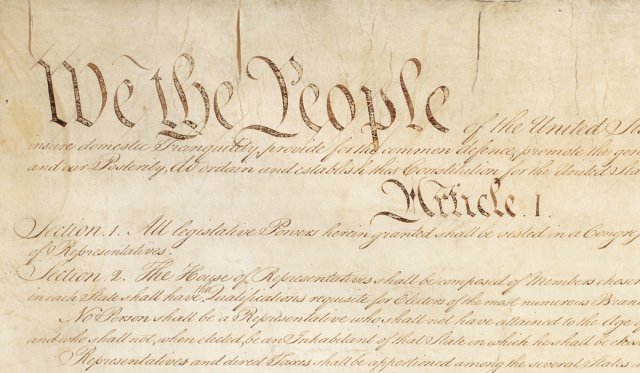 We the People of the United Sta
insure domestic Tranquility, provide for the common defence, promote the gen
and our Posterity, do ordain and establish this Constitution for the United Sta
Article. I.
Section. 1. All legislative Powers herein granted shall be vested in a Congre
of Representatives.
Section. 2. The House of Representatives shall be composed of Members chosen
in each State shall have the Qualifications requisite for Electors of the most numerous Bran
No Person shall be a Representative who shall not have attained to the Age
and who shall not, when elected, be an Inhabitant of that State in which he shall be chos
Representatives and direct Taxes shall be apportioned among the several States